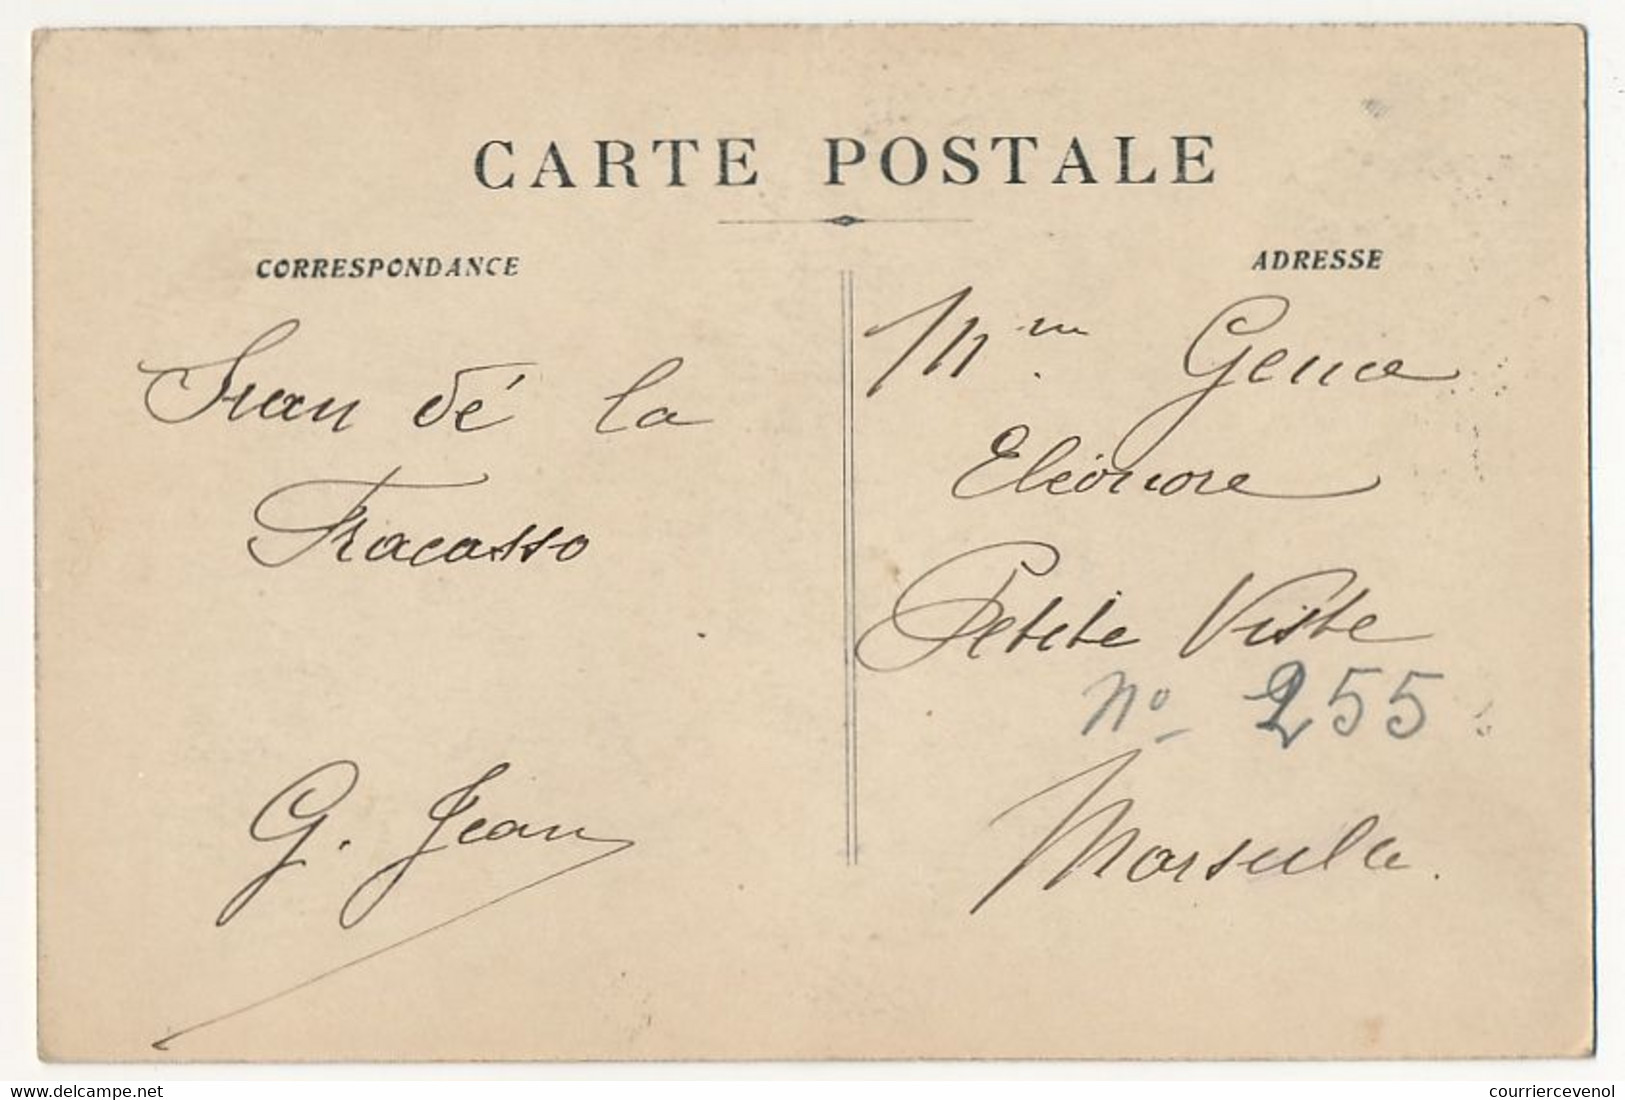 CARTE POSTALE
CORRESPONDANCE
dé la
Fracasso
G. Jean
ADRESSE
Mme
Eléonore
Petite Viste
No 255
Marseille.
www.delcampe.net
courriercevenol